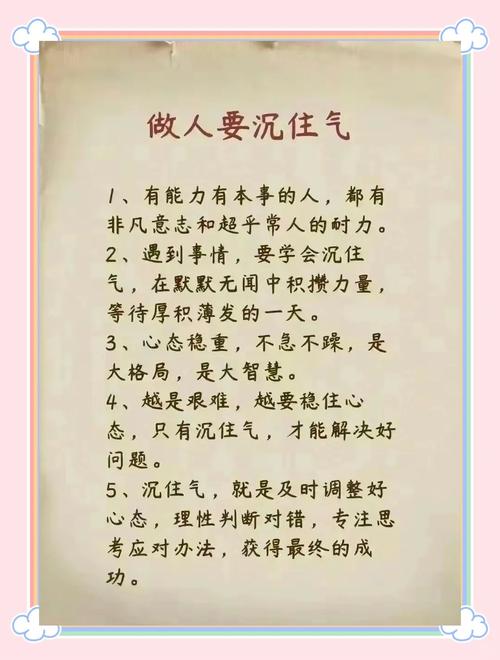 做人要沉住气
1、有能力有本事的人，都有
非凡意志和超乎常人的耐力。
2、遇到事情，要学会沉住
气，在默默无闻中积攒力量，
等待厚积薄发的一天。
3、心态稳重，不急不躁，是
大格局，是大智慧。
4、越是艰难，越要稳住心
态，只有沉住气，才能解决好
问题。
5、沉住气，就是及时调整好
心态，理性判断对错，专注思
考应对办法，获得最终的成
功。